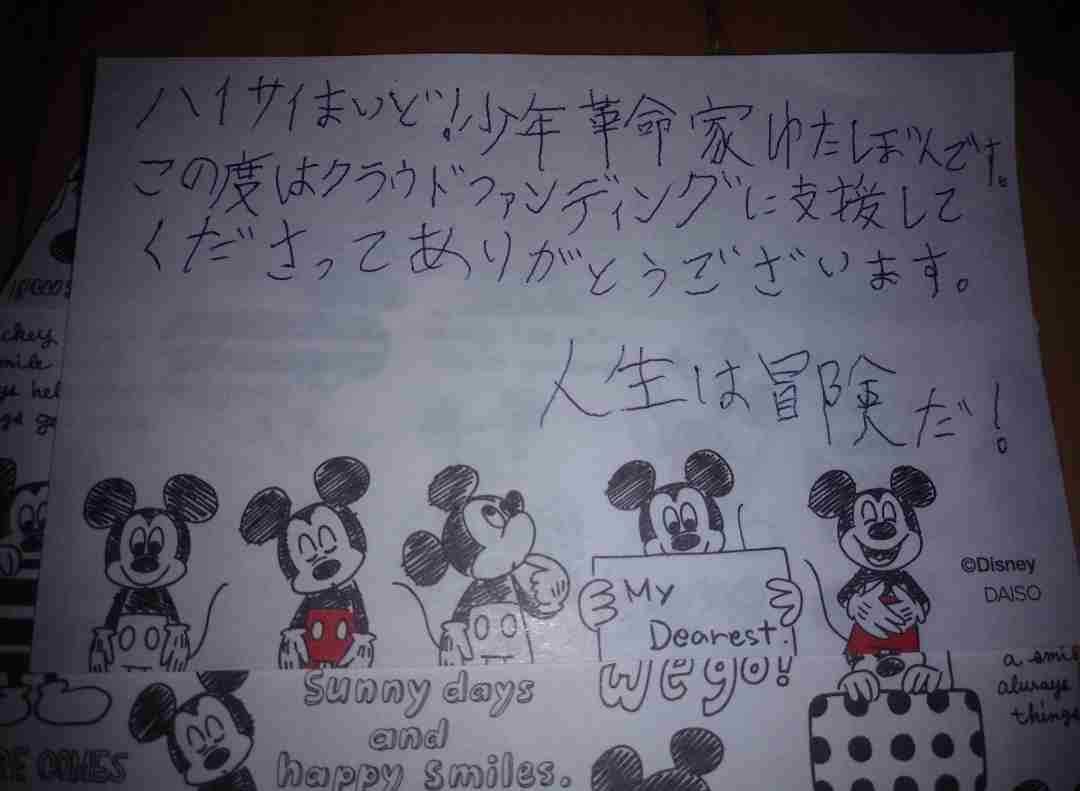 ハイサイまいど!少年革命家ゆたぼんです。
この度はクラウドファンディングに支援して
くださってありがとうございます。
人生は冒険だ!
©Disney
DAISO
My
Dearest.
ckey
mile
Sunny days
and
happy smiles.
we go!
a smile
always
things